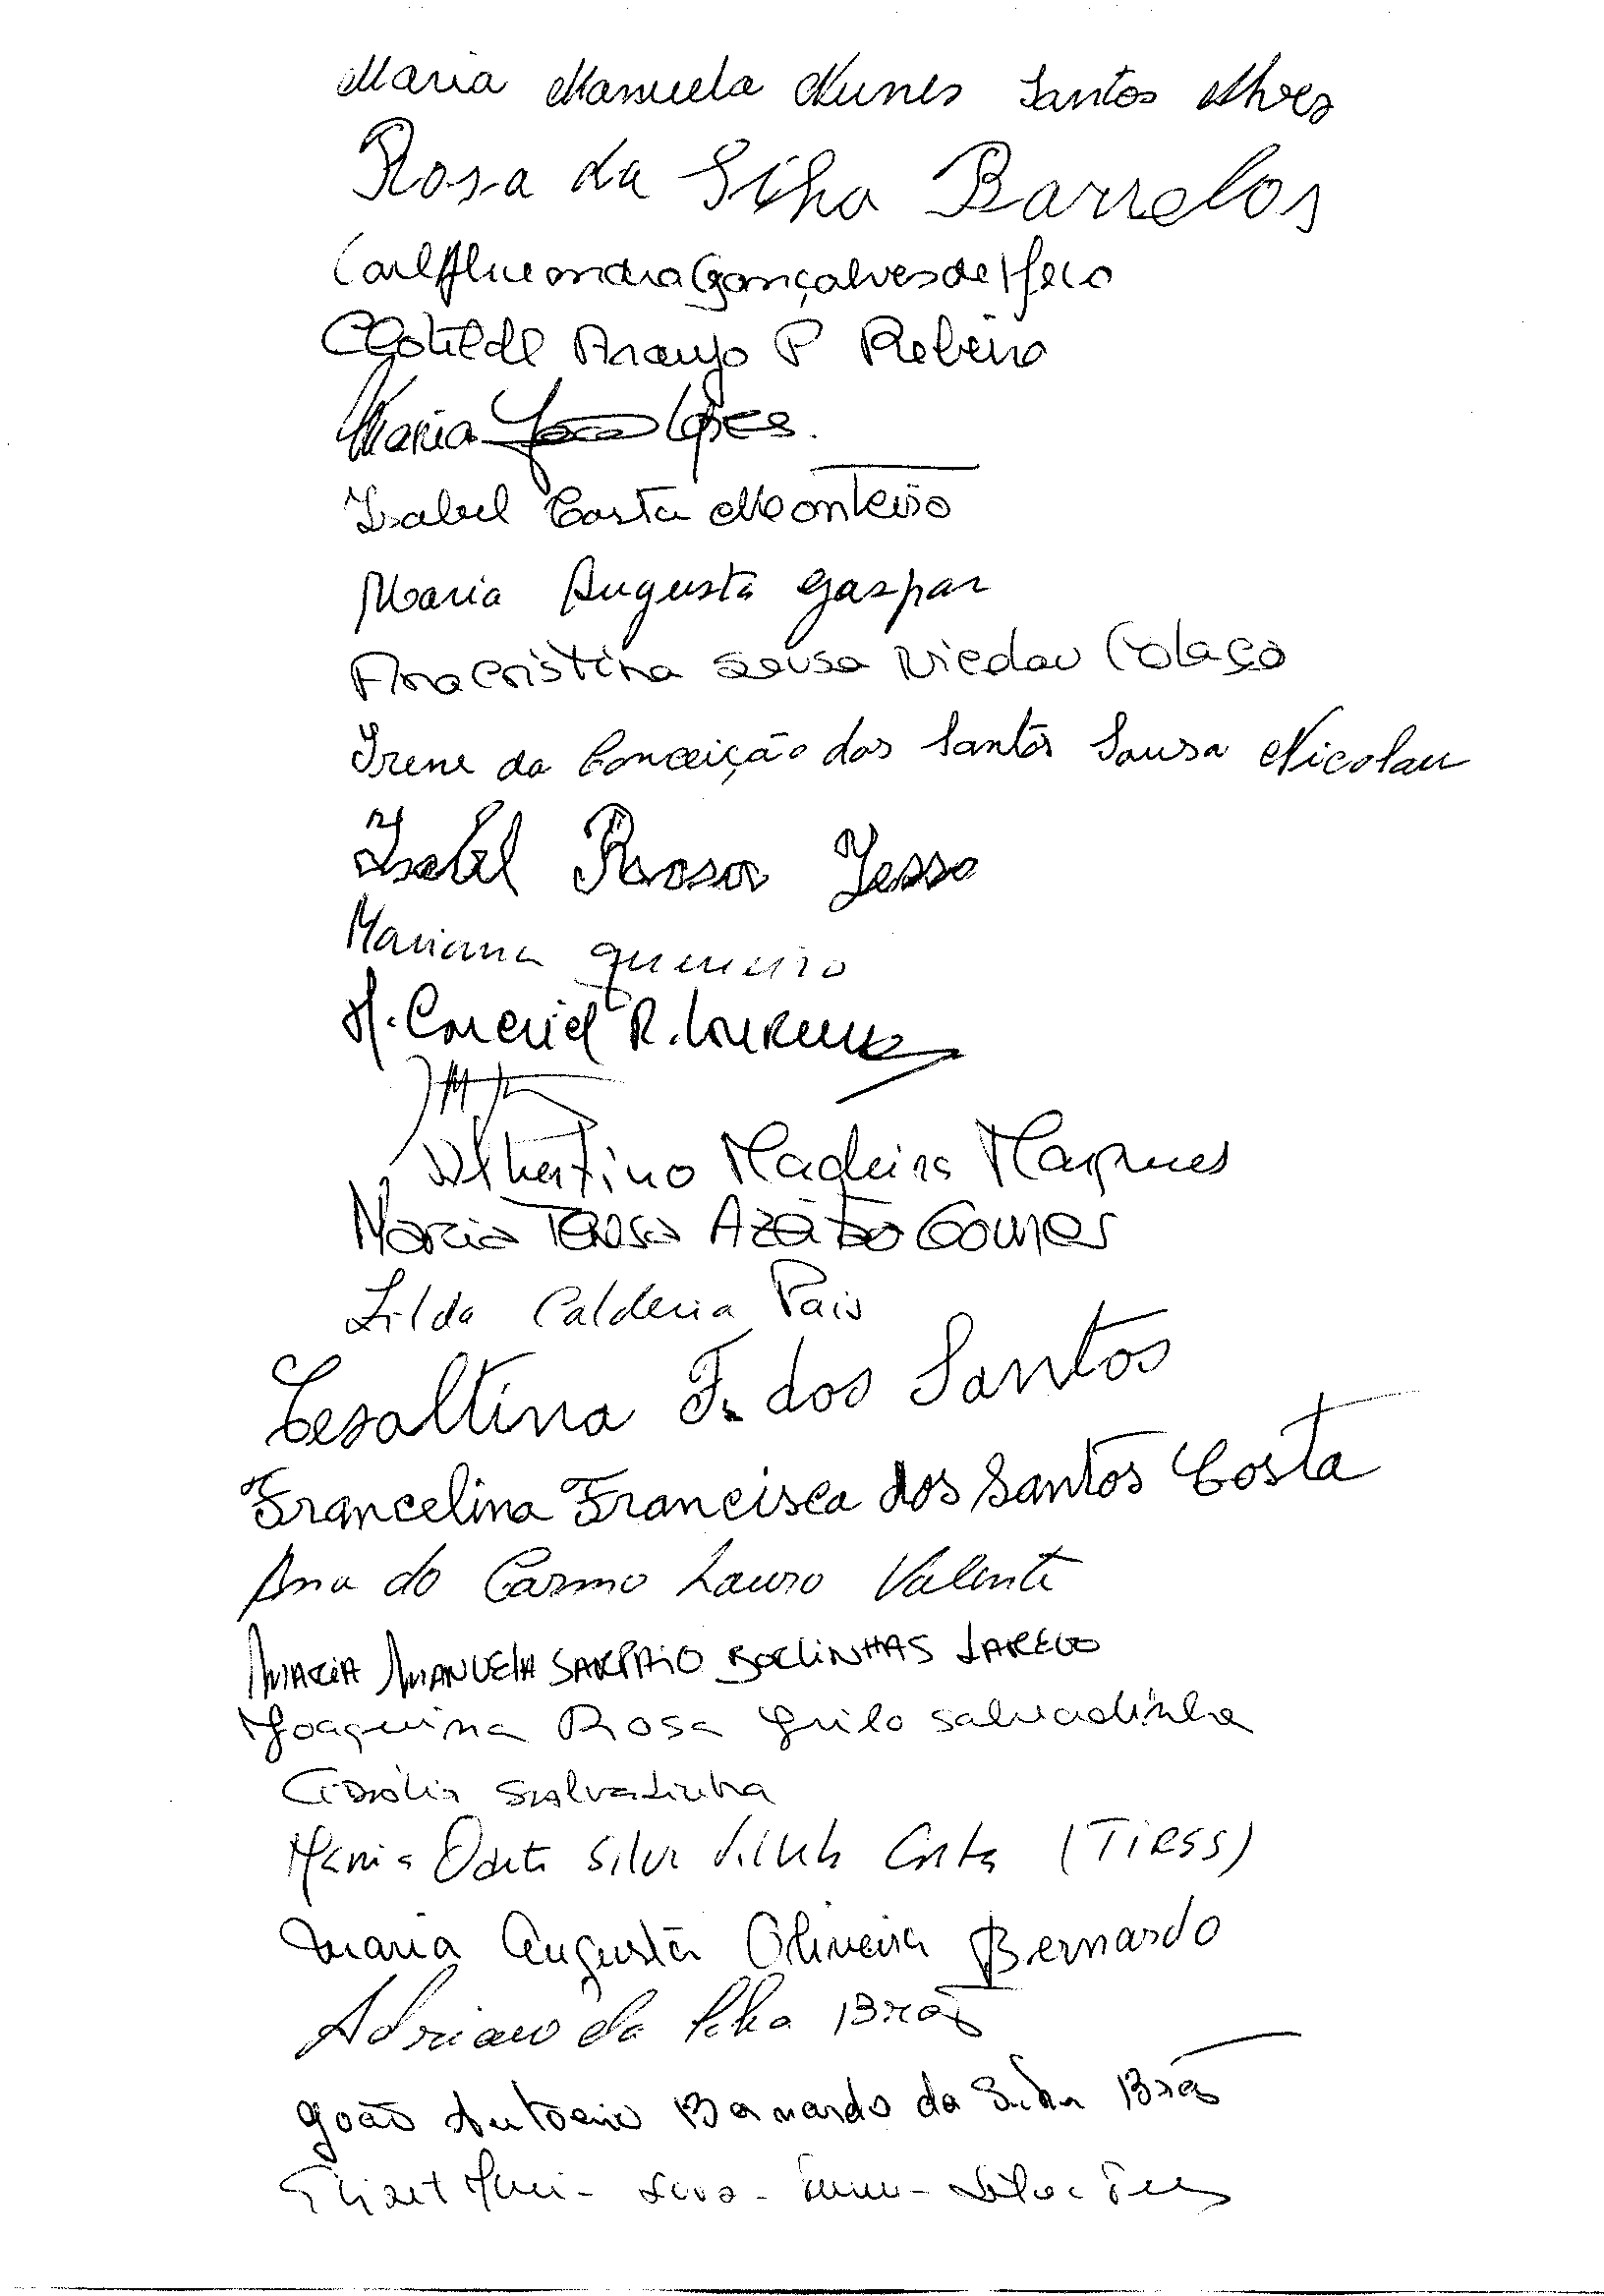 Maria Manuela Nunes Santos Alves
Rosa da Silva Barrelos
Gonçalves de
Clotilde Araujo P Ribeiro
Maria Lopes
Isabel Costa Monteiro
Maria Augusta Gaspar
Ana Cristina Sousa Nicolau Colaço
Irene da Conceição dos Santos Sousa Nicolau
Isabel Rosa Lessa
Mariana Guerreiro
M. R. Lourenço
Albertino Madeira Marques
Maria Teresa Azeitão Gomes
Lilda Calderia Pais
Cesaltina F. dos Santos
Francelina Francisca dos Santos Costa
Ana do Carmo Lauro Valente
MARIA MANUELA SAMPAIO LAREDO
Joaquina Rosa Grilo Salvadinha
Salvadinha
Maria Odete Silva Costa (TIRSS)
Maria Augusta Oliveira Bernardo
Adriano da Silva Brás
João Antonio Bernardo da Silva Brás